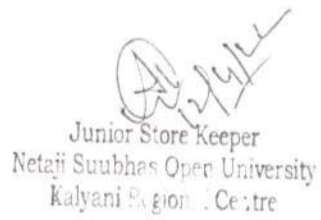 Junior Store Keeper
Netaji Suubhas Open University
Kalyani Centre